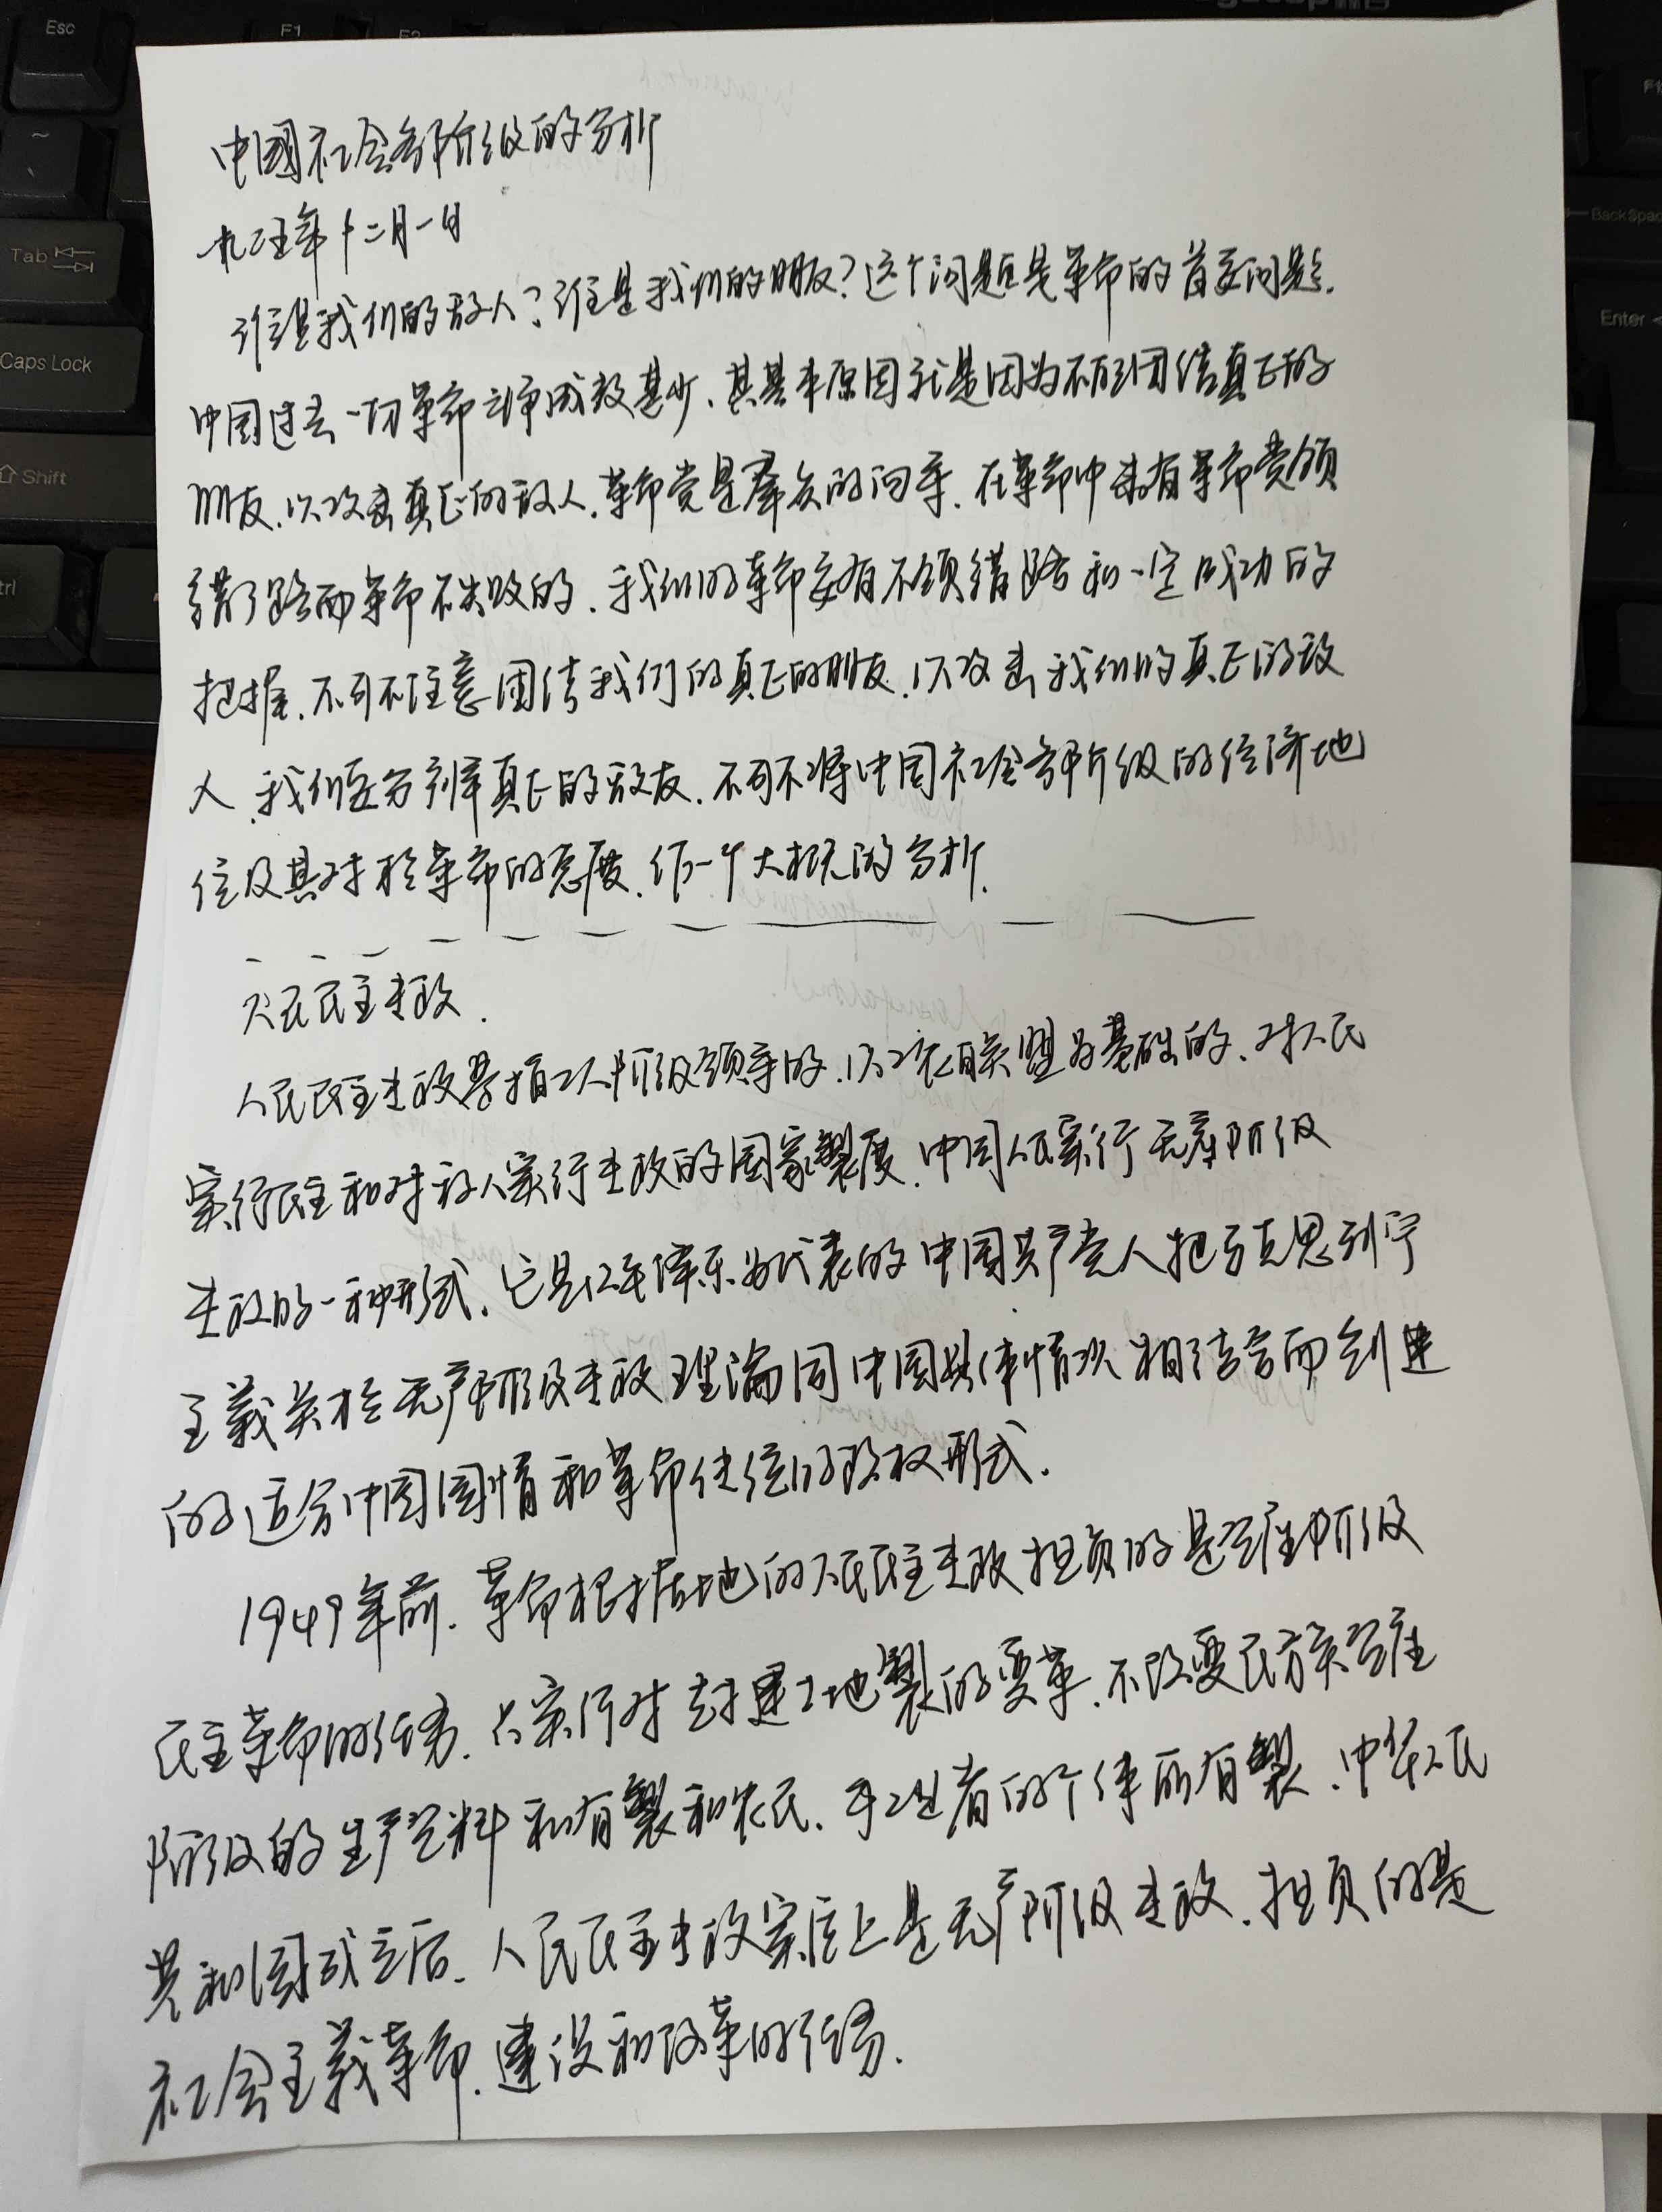 中國社会各阶级的分析
九二五年十二月一日
谁是我们的敌人？谁是我们的朋友？这个问题是革命的首要问题.
中国过去一切革命斗争成效甚少.其基本原因就是因为不能团结真正的
朋友.以攻击真正的敌人.革命党是群众的向导.在革命中未有革命党领
错了路而革命不失败的.我们的革命要有不领错路和一定成功的
把握.不可不注意团结我们的真正的朋友.以攻击我们的真正的敌
人.我们要分辨真正的敌友.不可不将中国社会各阶级的经济地
位及其对于革命的态度.作一个大概的分析.
人民民主专政.
人民民主专政是指工人阶级领导的.以工农联盟为基础的.对人民
实行民主和对敌人实行专政的国家製度.中国人民实行无产阶级
专政的一种形式.它是以毛泽东为代表的中国共产党人把马克思列宁
主義关于无产阶级专政理論同中国具体情况相结合而创建
的适合中国国情和革命传统的政权形式.
1949年前.革命根据地的人民民主专政担负的是资产阶级
民主革命的任务.只实行对封建土地製的变革.不改变民族资产
阶级的生产资料私有製和农民.手工业者的个体所有製.中华人民
共和国成立后.人民民主专政实质上是无产阶级专政.担负的是
社会主義革命.建设和改革的任务.
Esc
F1
F2
~
Tab
Caps Lock
Shift
BackSpac
Enter